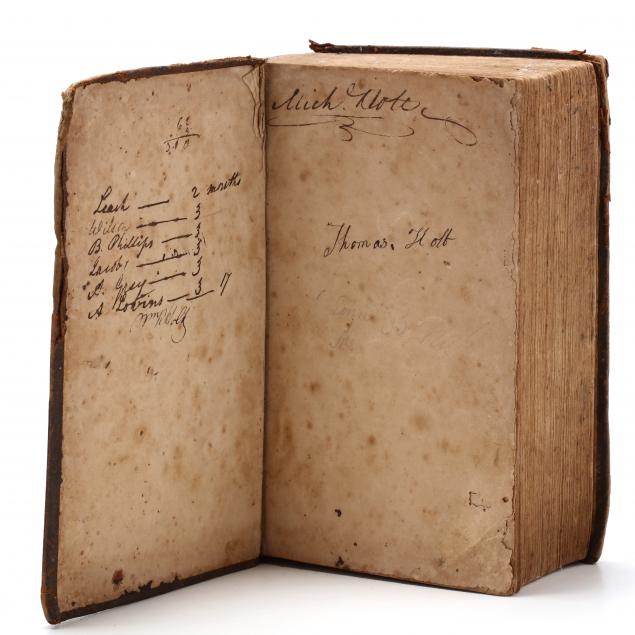 62
5.10
Leach — 2 months
Wilson — 3
B. Phillips — 3
Jacobs — 3
A. Grey — 3
A Robins — 3 17
Mich. Holt
Thomas. Holt